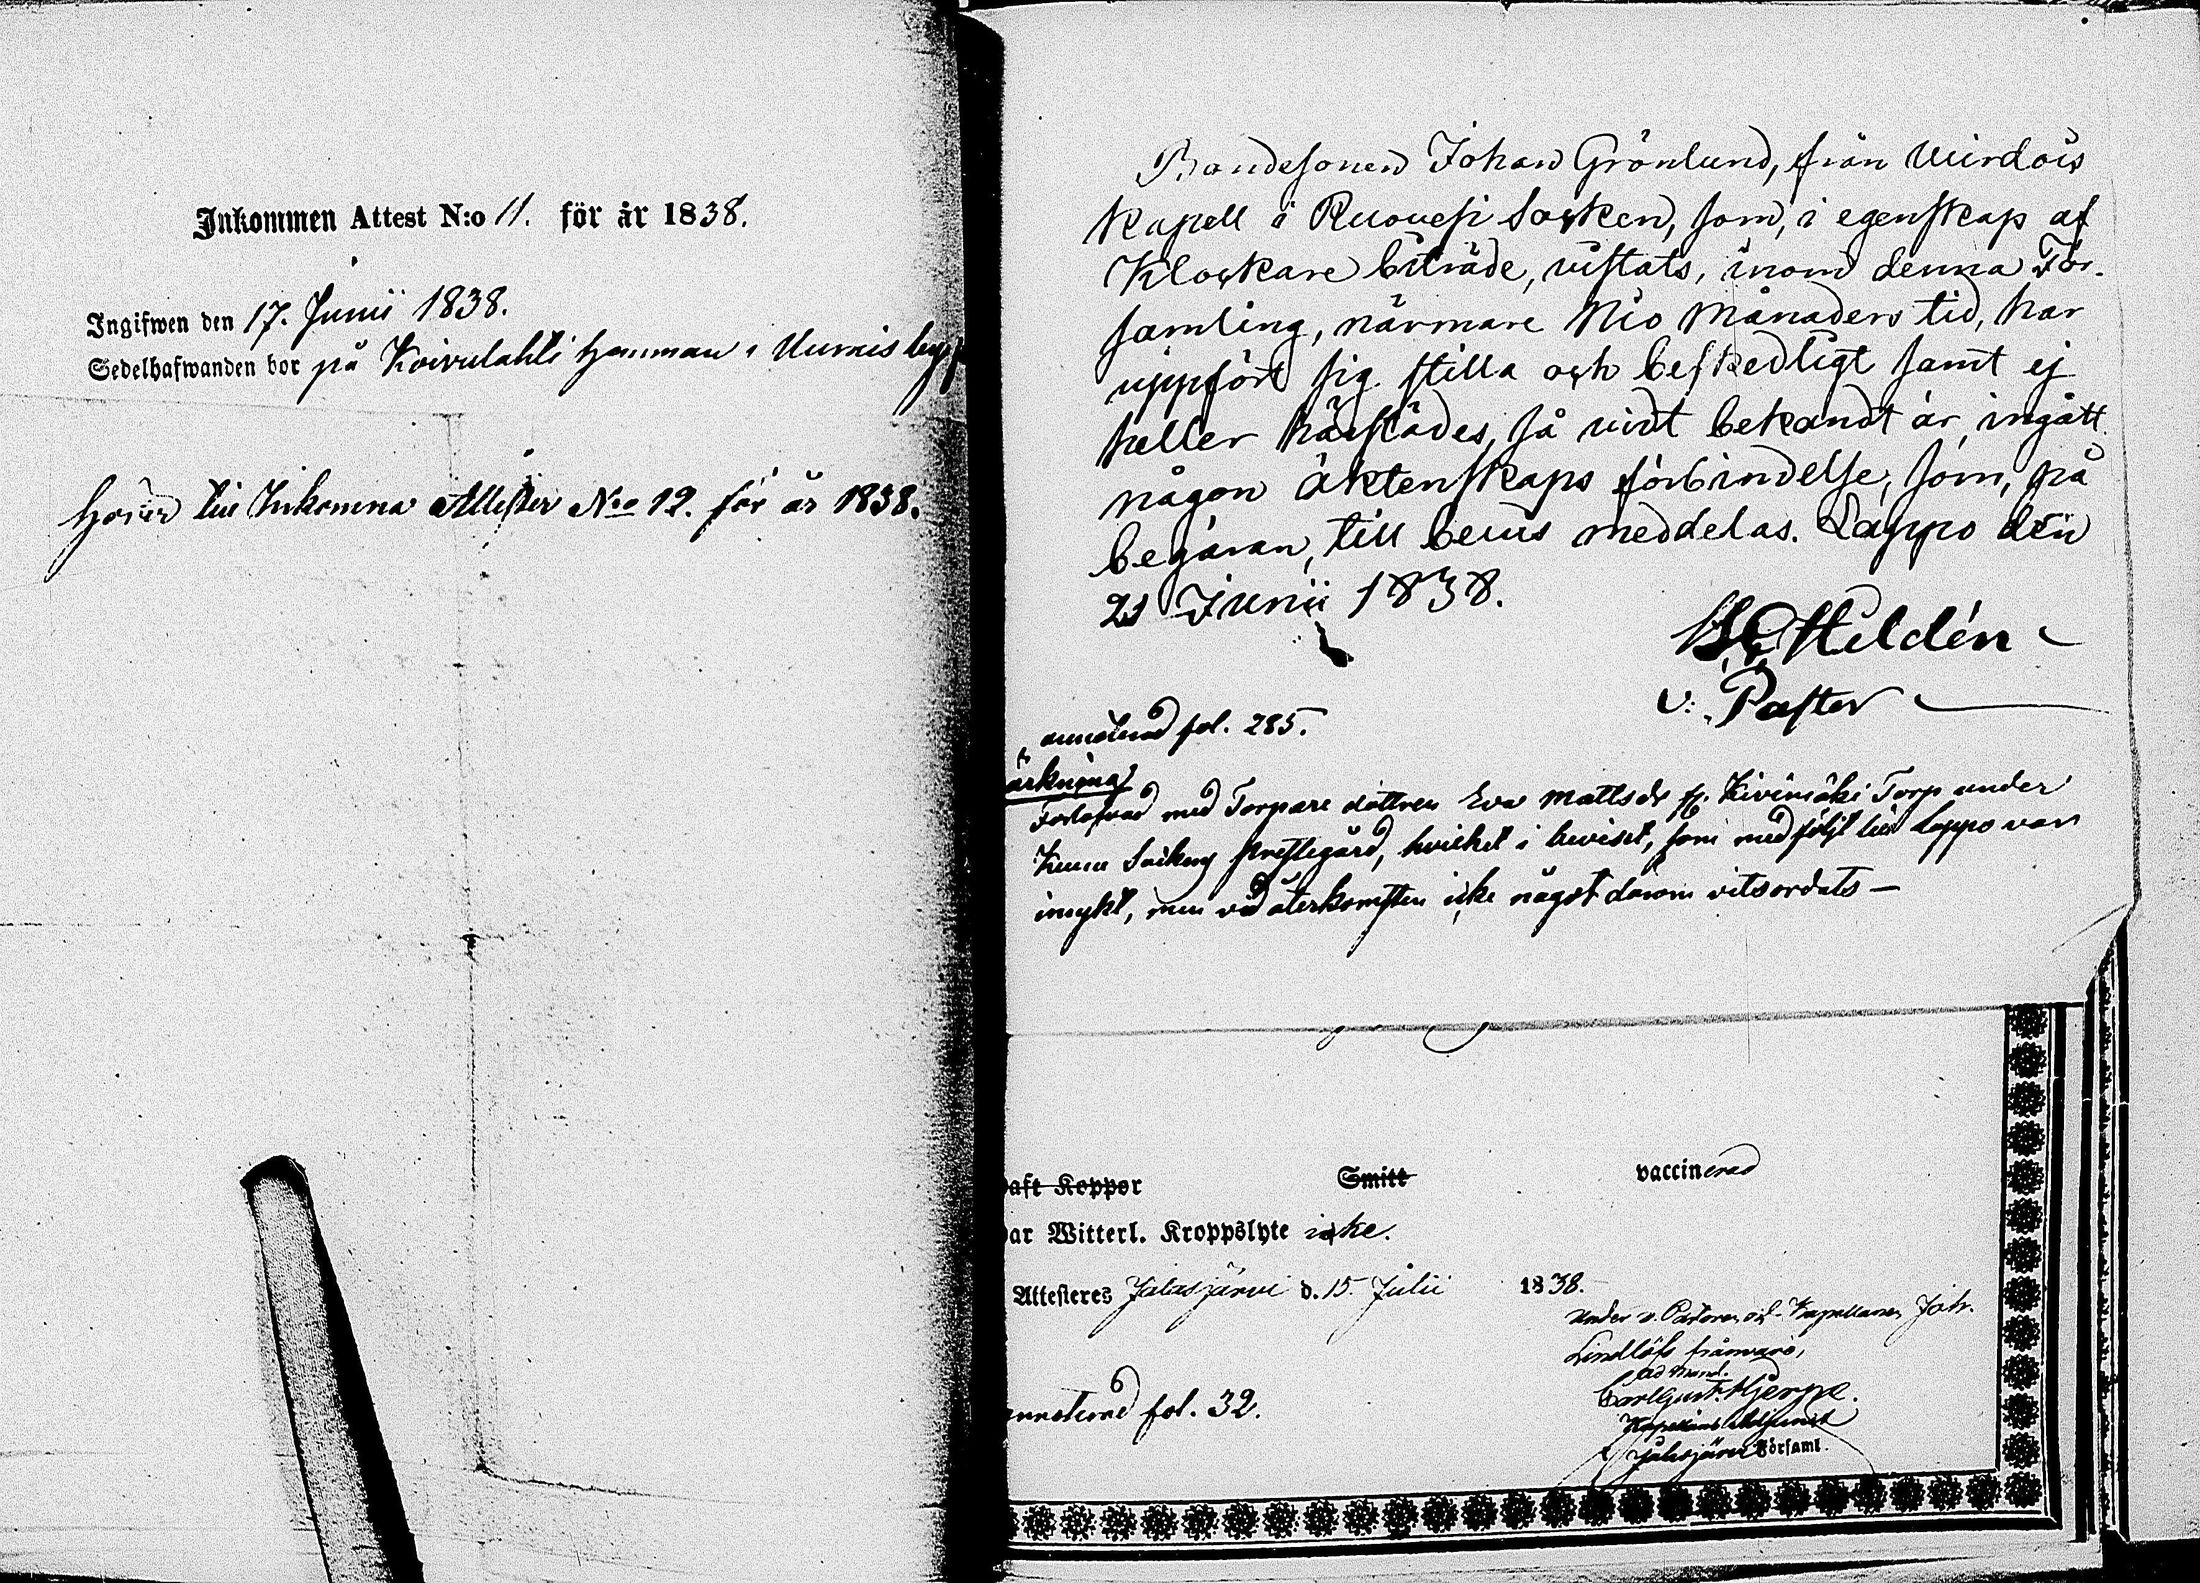 Inkommen Attest N:o 11. för år 1838.
Ingifwen den 17. Junii 1838.
Sedelhafwanden bor på Koivulahti hemman i
hörer till Inkomna Attester No 12. för år 1838.
Bondesonen Johan Grönlund, från Virdois
Kapell i Ruovesi Socken, som, i egenskap af
Klockare biträde, vistats, inom denna För-
samling, närmare Nio Månaders tid, har
uppfört sig stilla och beskedligt samt ej
heller härstädes, så vidt bekandt är, ingått
någon äktenskaps förbindelse, som, på
begäran, till bevis meddelas. Lappo den
21 Junii 1838.
Heldén
v. Pastor
annoterad fol. 285.
ärkning
Förlofvad med Torpare dottren Eva Mattsdr fr. Kivimäki Torp under
Prestegård, hvilket i beviset, som medföljt till Lappo var
intygt, men vid återkomsten icke något därom vitsordats —
aft Koppor Smitt vaccinerad
ar Witterl. Kroppslyte icke.
Attesteres Jalasjärvi d. 15. Julii 1838.
Under v. Pastoren och Kapellanen Joh.
Lindlöfs frånvaro,
ad mand.
Carl Gust. Hjerpe.
Kapellans Adjunct
i Jalasjärvi Församl.
annoterad fol. 32.